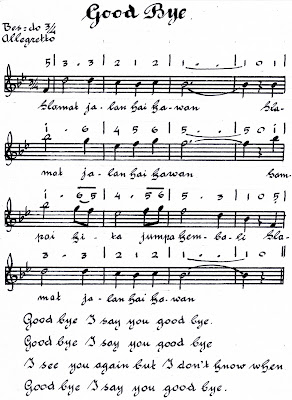 Good Bye
Bes = do 3/4
Allegretto
5 | 3 . 3 | 2 1 2 | 1 . . | . 5 |
3/4
Slamat ja-lan hai ka-wan Sla-
i . 6 | 4 5 6 | 5 . . | 5 0 i |
mat ja-lan hai kawan Sam-
i . 6 5 | 4 . 5 6 5 | 5 . 1 | 1 0 5 |
pai ki-ta jumpa kem-ba-li Sla-
3 . 3 | 2 1 2 | 1 . . | 1 0 ||
mat ja-lan hai ka-wan
Good bye I say you good bye.
Good bye I say you good bye
I see you again but I don't know when
Good bye I say you good bye.